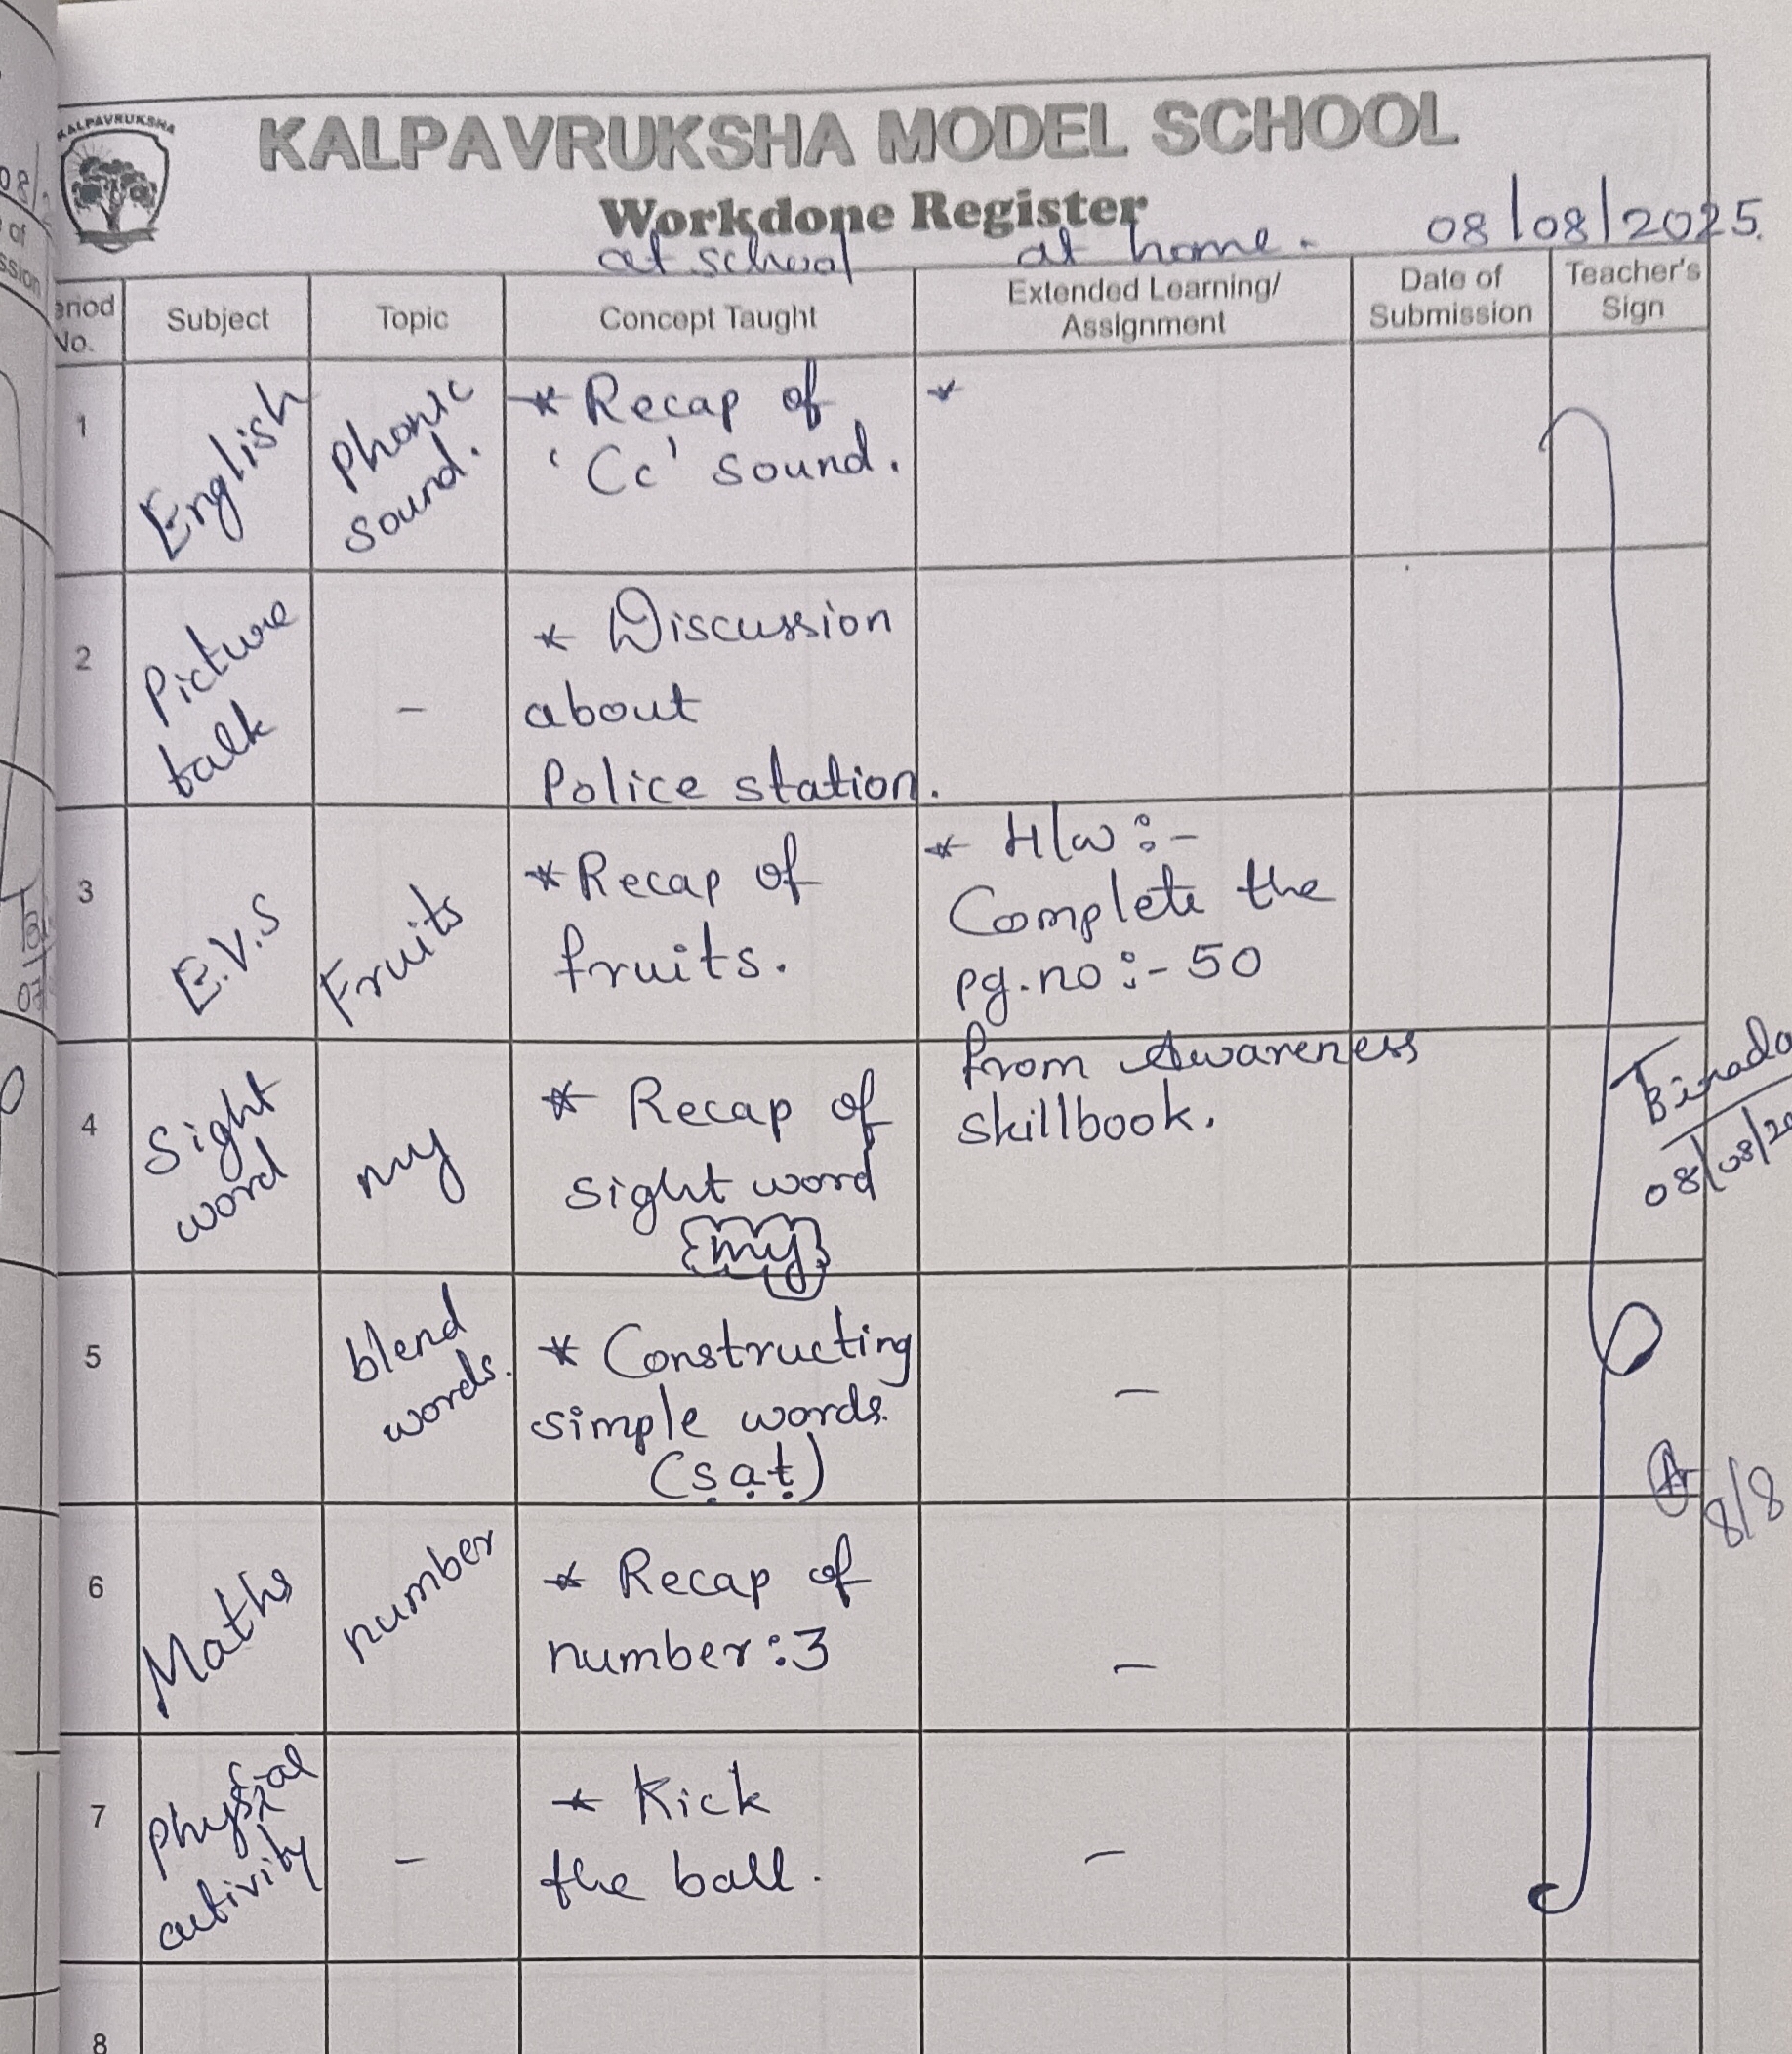 KALPAVRUKSHA
KALPAVRUKSHA MODEL SCHOOL
Workdone Register
at school at home. 08/08/2025.
eriod No. Subject Topic Concept Taught Extended Learning/ Assignment Date of Submission Teacher's Sign
1 English Phonic sound. * Recap of 'Cc' sound. *
2 Picture talk - * Discussion about Police station.
3 E.V.S Fruits * Recap of fruits. * H/w :- Complete the pg.no :- 50 from Awareness skillbook.
4 Sight word my * Recap of sight word {my}
5 blend words. * Constructing simple words. (sat) -
6 Maths number * Recap of number : 3 -
7 Physical activity - * Kick the ball. -
8
8/8